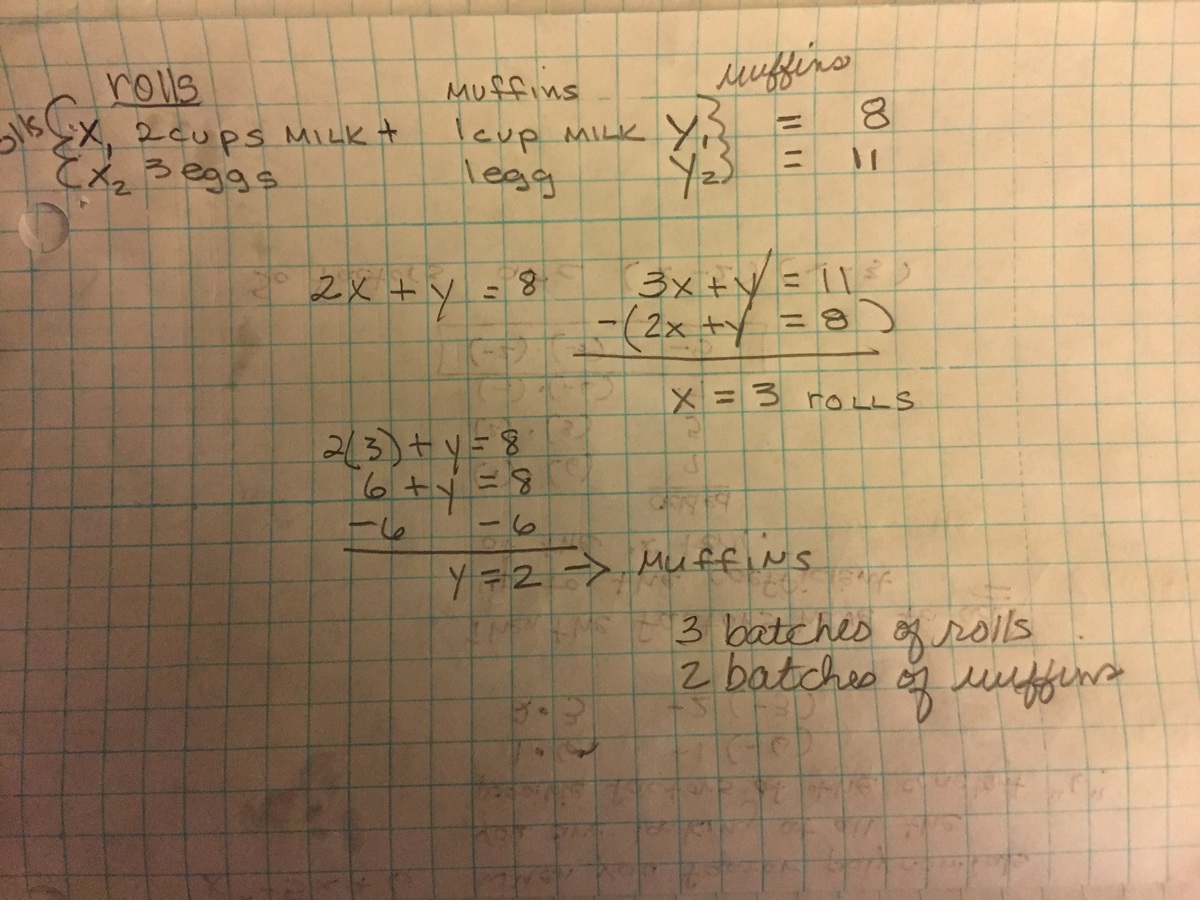 rolls Muffins Muffins
X1 2 cups MILK + 1 cup MILK Y1 = 8
X2 3 eggs 1 egg Y2 = 11
2x + y = 8 3x + y = 11
-(2x + y = 8)
x = 3 rOLLS
2(3) + y = 8
6 + y = 8
-6 -6
y = 2 → Muffins
3 batches of rolls
2 batches of muffins